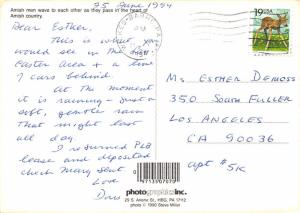 Amish men wave to each other as they pass in the heart of
Amish country.
25 June 1994
Dear Esther,
This is what you
would see in the
Easter Area + a time
I cal behind.
At the moment
it is raining - just a
soft, gentle rain
that might last
all day.
I returned PLB
lease and deposited
check Mary sent
Love
Doris
19 USA
Ms Esther Demoss
350 South Fuller
Los Angeles
CA 90036
apt # 5K
photographics inc.
29 S. Arlene St., HBG, PA 17112
photo © 1990 Steve Miller